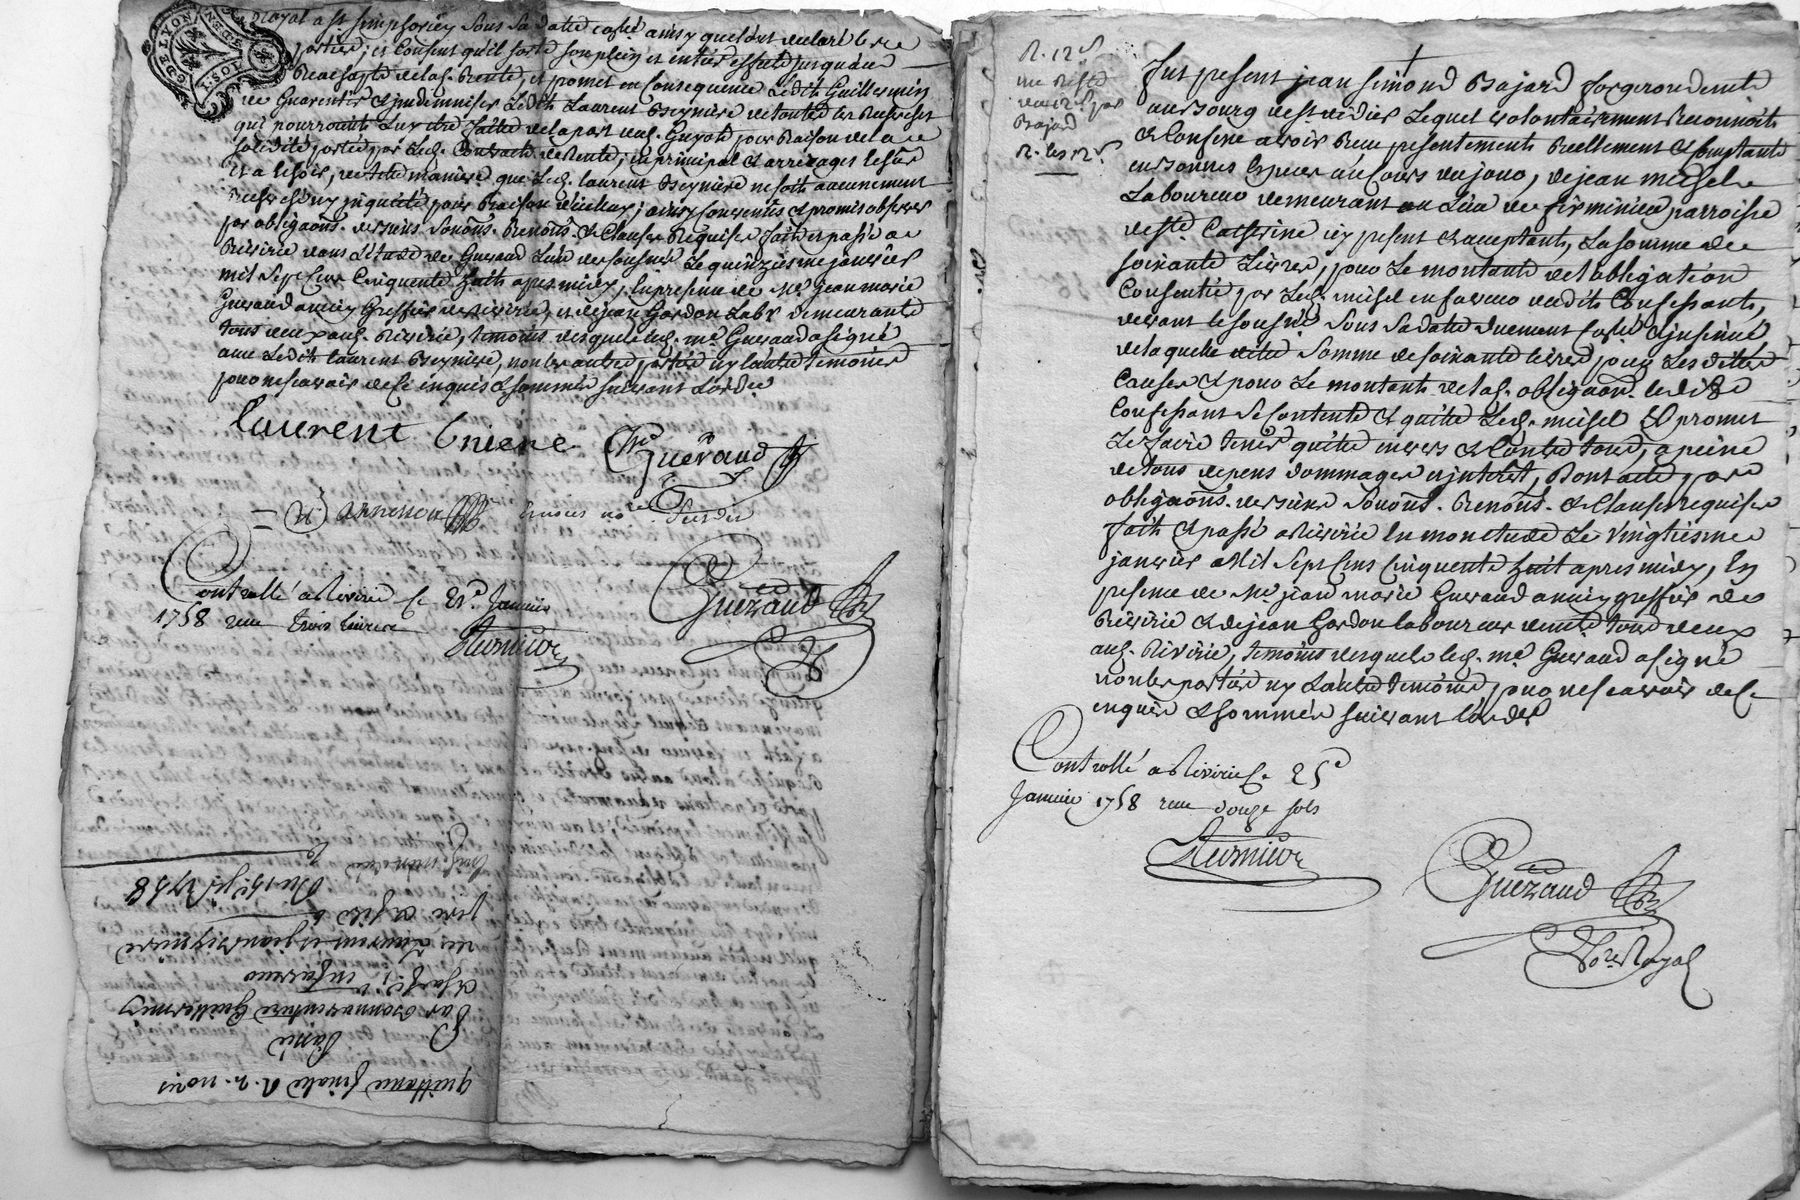 Royal a St simphorien sous sa datte costé ainsy quelont declaré les
parties, et consent qu'il sorte son plein et entier effet jusqu'au
Reachapte de lad. Rente, et promet en consequence Ledit Guillermin
de Guarentir et indemniser Ledit Laurent Bregniere de toutes les Recherches
qui pourroint luy etre faites de la part dud. Guyot pour Raison de la
solidité portée par led. Contract de Rente, en principal et arrerages
et a echoir, de telle maniere que led. laurent Bregniere ne soit aucunement
Recherché ny inquieté pour Raison d'icelluy; ainsy convenus et promis observer
par obligaons. dessains soumons. Renons. et Clauses Requises fait et passé a
Riverie dans l'étude de Gueraud L'un des sousnés Le quinziesme janvier
mil Sept Cent Cinquante huit apres midy, en presence de Me jean marie
Gueraud ancien Greffier de Riverie, et de jean Gordon Labr demeurants
tous deux aud. Riverie, temoins desquels led. me Gueraud a signé
avec Ledit laurent Bregniere, non les autres parties ny l'autre temoins
pour ne scavoir de ce enquis et sommés suivant L'orde
laurent bniere Gueraud
Controllé a Riverie le 25e Janvier
1758 reçu trois livres
Gueraud
quittance finale
Passé
Par Bonnaventure Guillermin
en faveur
des Laurent et jean Bregniere
pere et fils
Du 15e jer 1758
R. 12s
Bajard
R. les 12s
Fut present jean simond Bajard forgeron demt
au Bourg de st didier Lequel volontairement Reconnoit
et Confesse avoir Receu presentement Reellement et Comptant
en Bonnes Especes au Cours du jour, de jean meisel
Laboureur demeurant au Lieu de firminieu parroisse
de ste Catherine icy present et acceptant, La somme de
soixante Livres, pour Le montant de l'obligation
Consentie par led. meisel en faveur dudit Confessant,
devant le sousné sous sa datte duement Costé et insinué
de laquelle ditte somme de soixante livres pour les dittes
Causes et pour Le montant de lad. obligaon. ledit
Confessant se contente et quitte led. meisel et promet
Le faire tenir quitte envers et Contre tous, a peine
de tous depens dommages et interest, Dont acte, par
obligaons. dessains soumons. Renons. et Clauses requises
fait et passé a Riverie En mon etude Le vingtiesme
janvier Mil Sept Cens Cinquante huit apres midy, En
presence de Me jean marie Gueraud ancien greffier de
Riverie et de jean Gordon laboureur demts tous deux
aud. Riverie, temoins desquels led. me Gueraud a signé
non les parties ny L'autre temoins, pour ne scavoir de ce
enquis et sommés suivant L'orde
Controllé a Riverie le 25e
Janvier 1758 reçu douze sols
Gueraud
Nore Royal